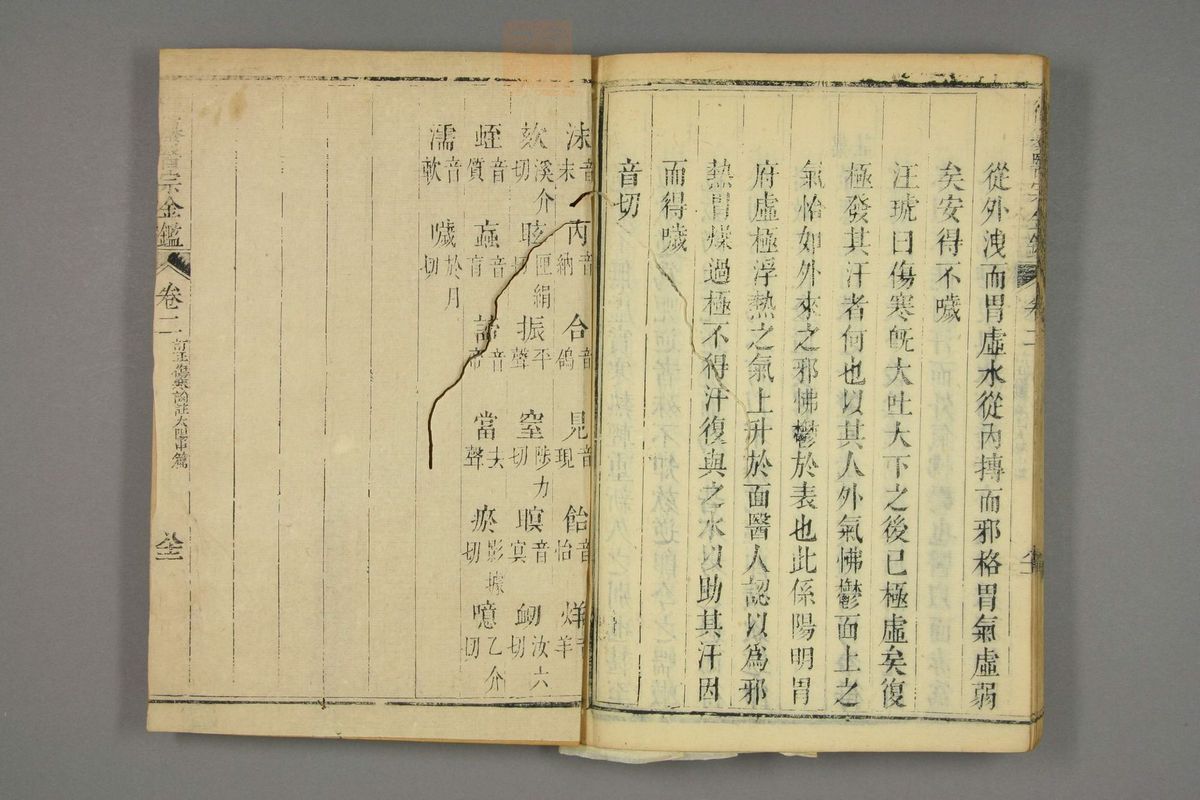 從外洩而胃虛水從內搏而邪格胃氣虛弱
矣安得不噦
汪琥曰傷寒旣大吐大下之後已極虛矣復
極發其汗者何也以其人外氣怫鬱面上之
氣恰如外來之邪怫鬱於表也此係陽明胃
府虛極浮熱之氣上升於面醫人認以為邪
熱胃燥過極不得汗復與之水以助其汗因
而得噦
音切
沫音末 芮音納 合音鴿 見音現 飴音怡 烊音羊
欬溪介切 眩匣絹切 振平聲 窒陟力切 瞑音冥 衂汝六切
蛭音質 蝱音盲 諦音帝 當去聲 瘀影據切 噫乙介切
濡音軟 噦於月切
宗金鑑 卷二 訂正傷寒論註太陽中篇